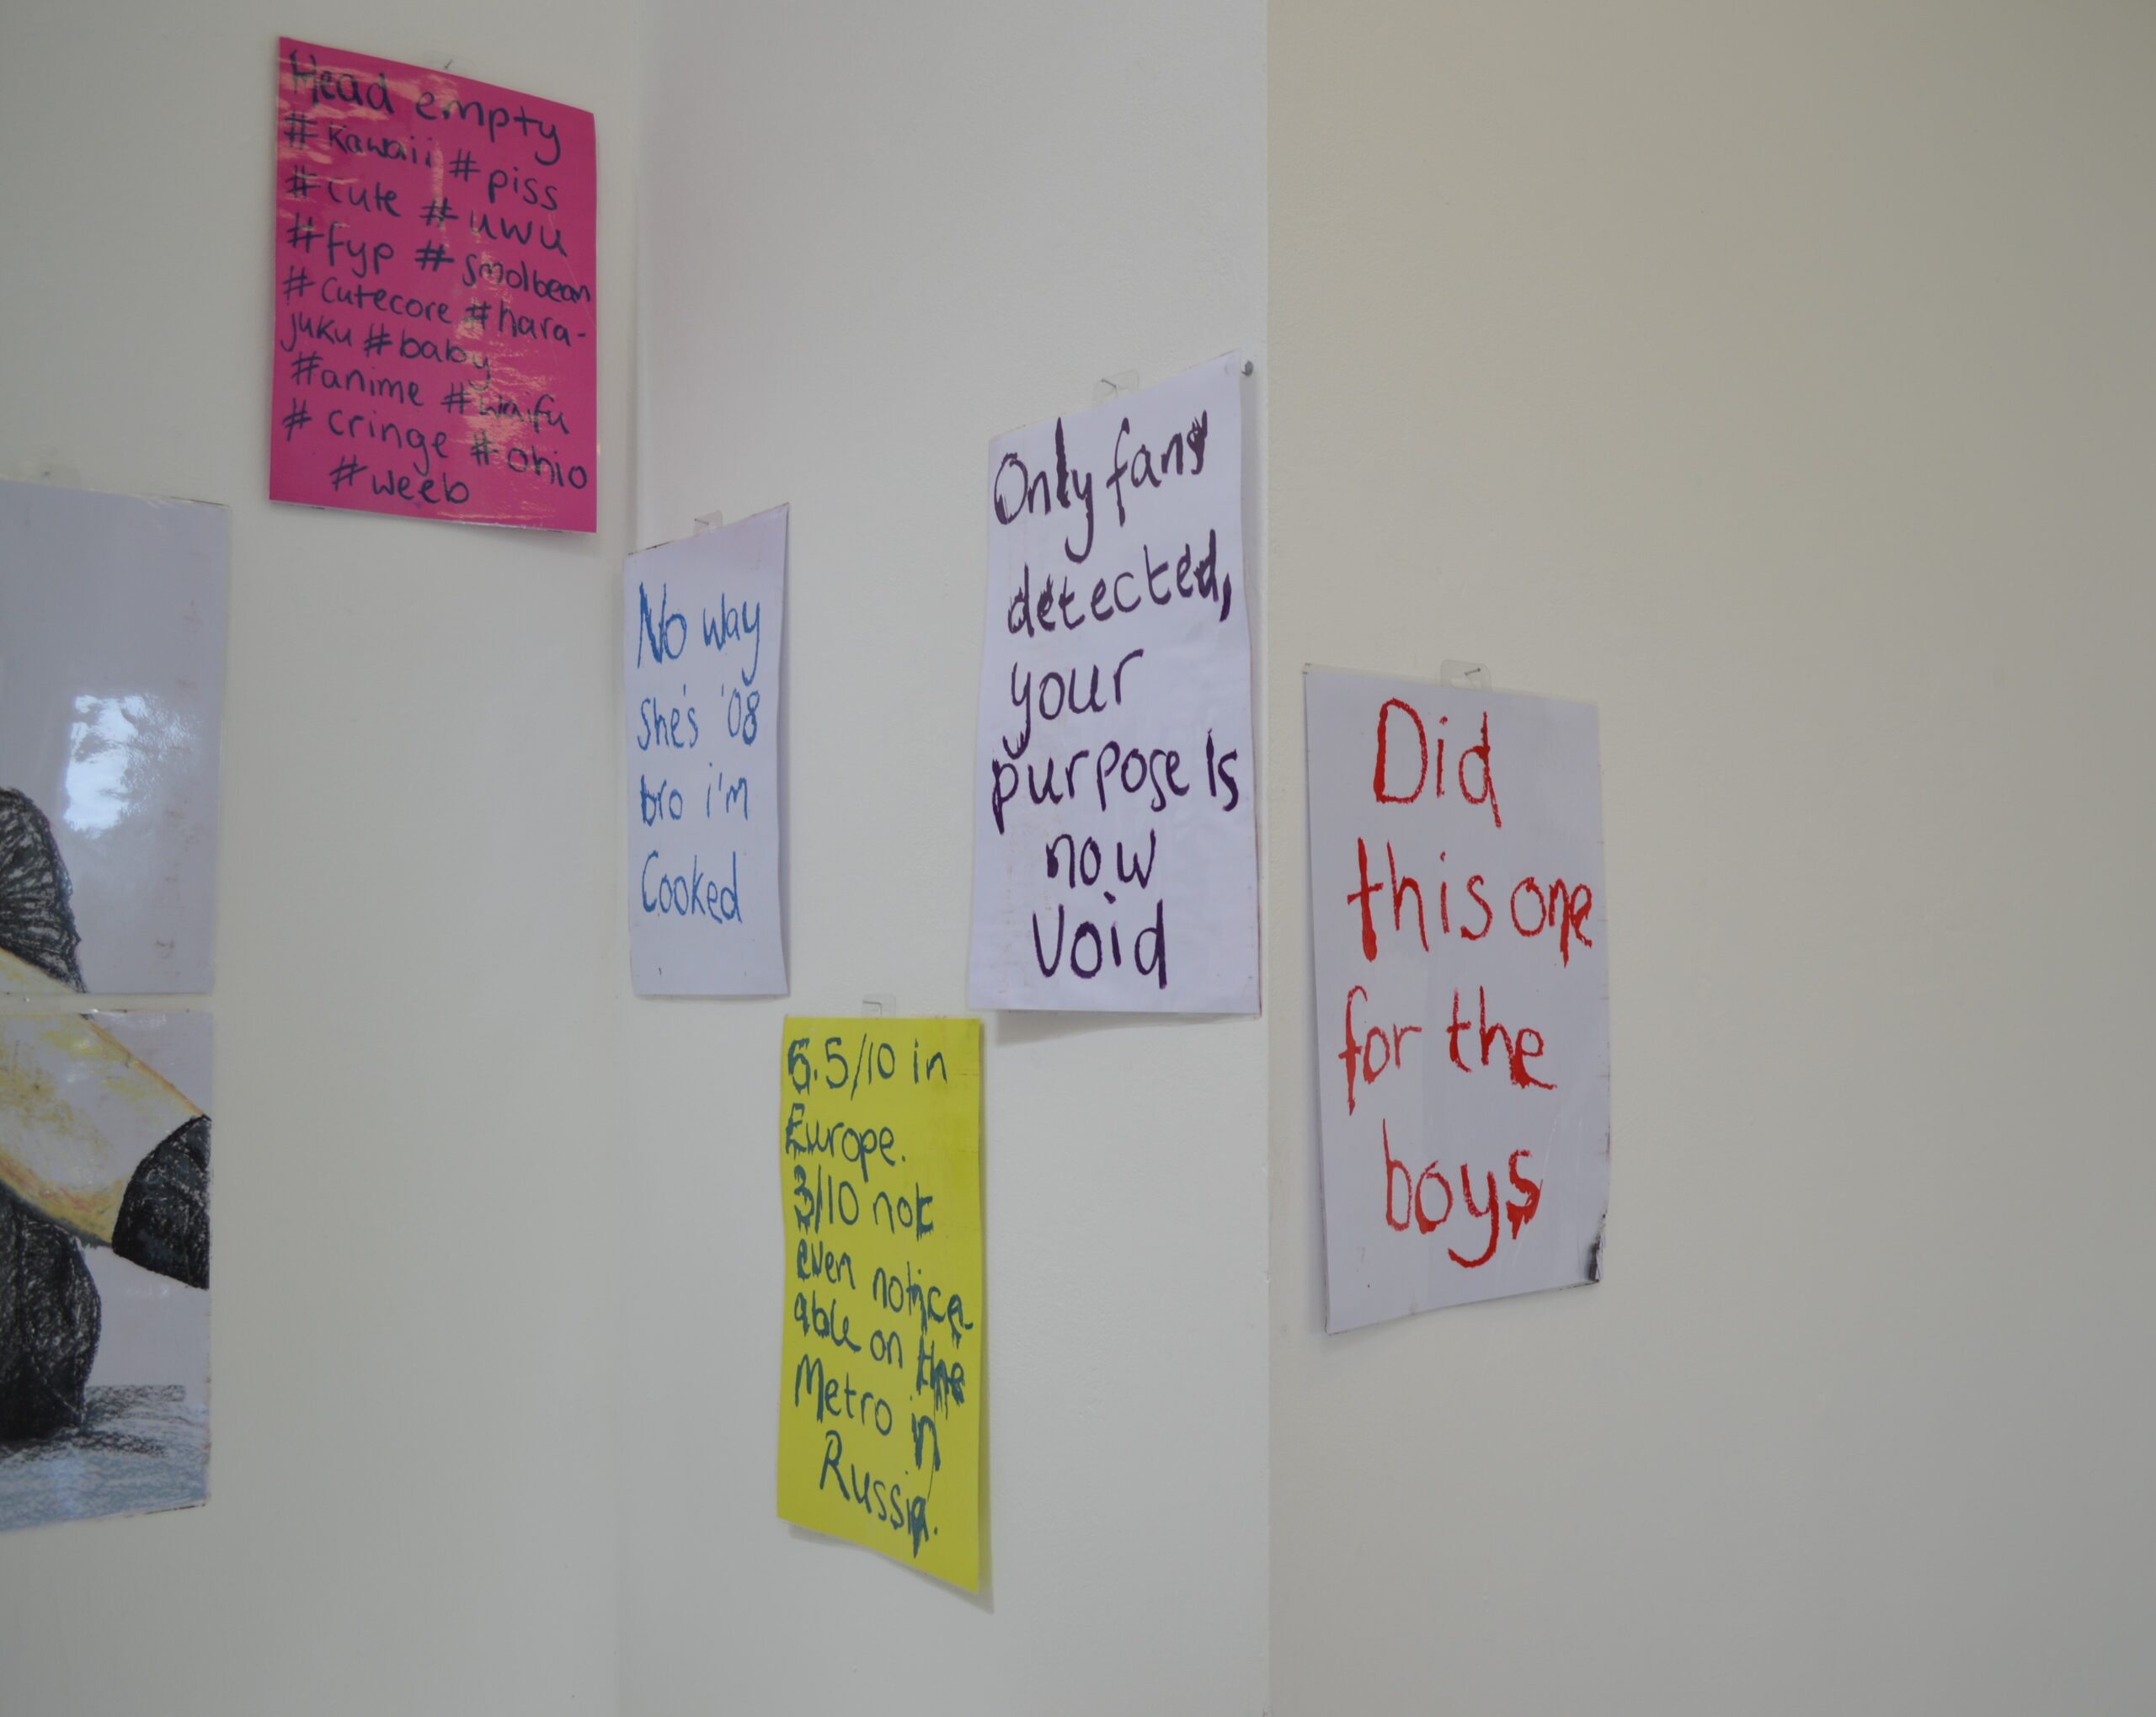 Head empty
#Kawaii #piss
#cute #uwu
#fyp #smolbean
#cutecore #hara-
juku #baby
#anime #waifu
#cringe #ohio
#weeb
No way
she's '08
bro i'm
Cooked
Only fans
detected,
your
purpose is
now
Void
6.5/10 in
Europe.
3/10 not
even notice
able on the
Metro in
Russia.
Did
this one
for the
boys